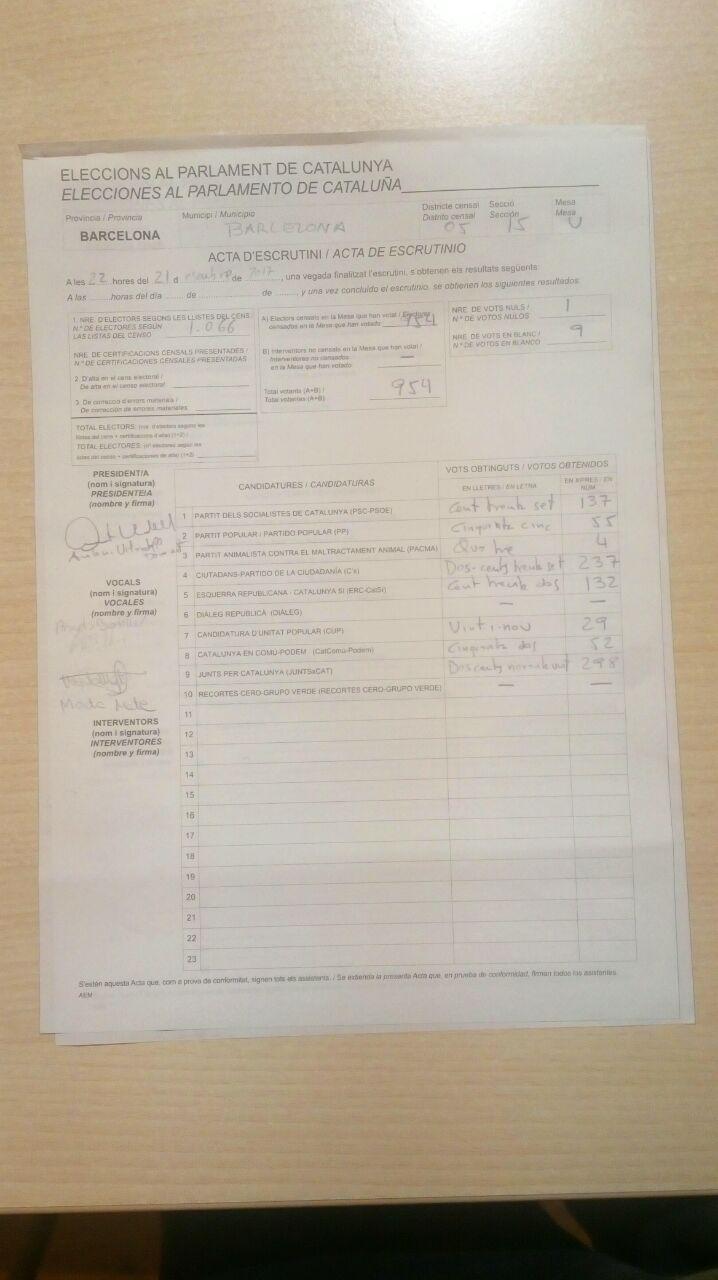 ELECCIONS AL PARLAMENT DE CATALUNYA
ELECCIONES AL PARLAMENTO DE CATALUÑA
Provincia / Provincia
BARCELONA
Municipi / Municipio
BARCELONA
Districte censal Secció Mesa
Distrito censal Sección Mesa
05 15 U
ACTA D'ESCRUTINI / ACTA DE ESCRUTINIO
A les 22 hores del 21 d de 2017, una vegada finalitzat l'escrutini, s'obtenen els resultats següents:
A las ........horas del día ...... de ........................ de ........., y una vez concluido el escrutinio, se obtienen los siguientes resultados:
1. NRE. D'ELECTORS SEGONS LES LLISTES DEL CENS
N.º DE ELECTORES SEGÚN 1.066
LAS LISTAS DEL CENSO
NRE. DE CERTIFICACIONS CENSALS PRESENTADES /
N.º DE CERTIFICACIONES CENSALES PRESENTADAS
2. D'alta en el cens electoral /
De alta en el censo electoral
3. De correcció d'errors materials /
De corrección de errores materiales
TOTAL ELECTORS: (nre. d'electors segons les
llistes del cens + certificacions d'alta) (1+2) /
TOTAL ELECTORES: (nº electores según las
listas del censo + certificaciones de alta) (1+2)
A) Electors censats en la Mesa que han votat / Electores
censados en la Mesa que han votado 954
B) Interventors no censats en la Mesa que han votat /
Interventores no censados —
en la Mesa que han votado
Total votants (A+B) /
Total votantes (A+B) 954
NRE. DE VOTS NULS / 1
N.º DE VOTOS NULOS
NRE. DE VOTS EN BLANC / 9
N.º DE VOTOS EN BLANCO
PRESIDENT/A
(nom i signatura)
PRESIDENTE/A
(nombre y firma)
VOCALS
(nom i signatura)
VOCALES
(nombre y firma)
INTERVENTORS
(nom i signatura)
INTERVENTORES
(nombre y firma)
CANDIDATURES / CANDIDATURAS
VOTS OBTINGUTS / VOTOS OBTENIDOS
EN LLETRES / EN LETRA
EN XIFRES / EN NÚM.
1 PARTIT DELS SOCIALISTES DE CATALUNYA (PSC-PSOE) Cent trenta set 137
2 PARTIT POPULAR / PARTIDO POPULAR (PP) Cinquanta cinc 55
3 PARTIT ANIMALISTA CONTRA EL MALTRACTAMENT ANIMAL (PACMA) Quatre 4
4 CIUTADANS-PARTIDO DE LA CIUDADANÍA (C's) Dos-cents trenta set 237
5 ESQUERRA REPUBLICANA - CATALUNYA SÍ (ERC-CatSí) Cent trenta dos 132
6 DIÀLEG REPUBLICÀ (DIÀLEG) — —
7 CANDIDATURA D'UNITAT POPULAR (CUP) Vint-i-nou 29
8 CATALUNYA EN COMÚ-PODEM (CatComú-Podem) Cinquanta dos 52
9 JUNTS PER CATALUNYA (JUNTSxCAT) Dos cents noranta vuit 298
10 RECORTES CERO-GRUPO VERDE (RECORTES CERO-GRUPO VERDE) — —
11
12
13
14
15
16
17
18
19
20
21
22
23
S'estén aquesta Acta que, com a prova de conformitat, signen tots els assistents. / Se extiende la presente Acta que, en prueba de conformidad, firman todos los asistentes.
AEM